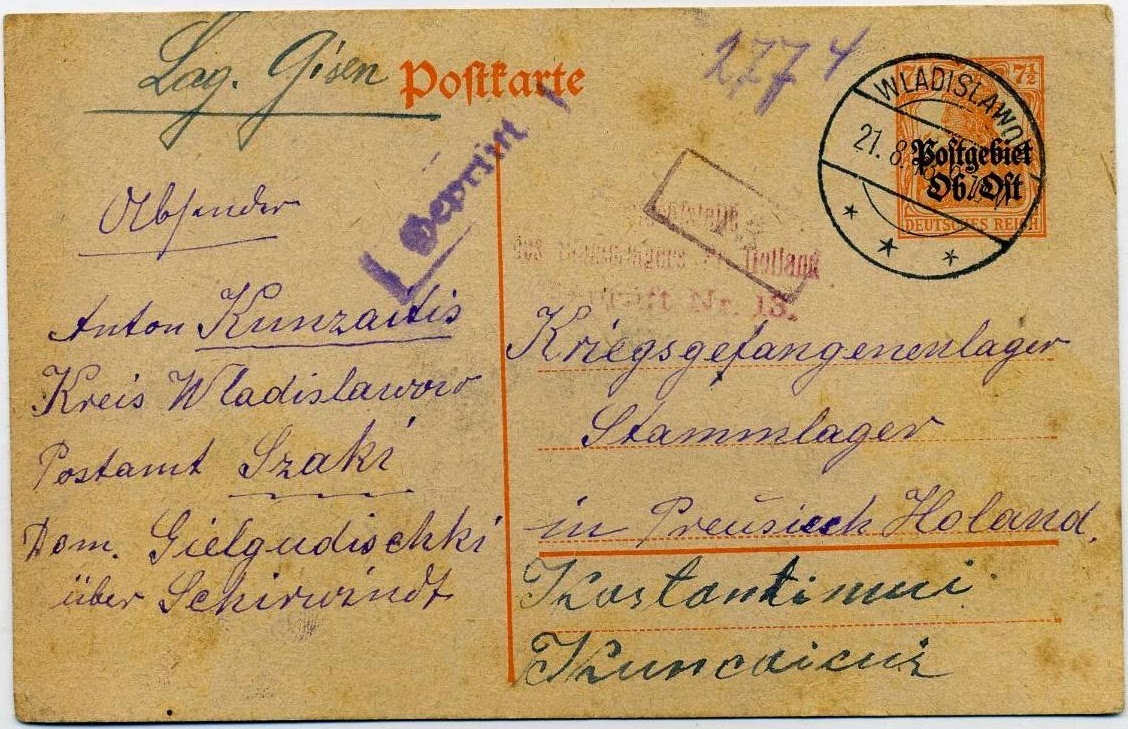 Lag. Gisen
Postkarte
2774
WLADISLAWOW
21. 8.
7½
Postgebiet
Ob. Ost
DEUTSCHES REICH
Geprüft
Absender
Anton Kunzaitis
Kreis Wladislawow
Postamt Szaki
Dom. Gielgudischki
über Schirwindt
des Holland
Nr. 13.
Kriegsgefangenenlager
Stammlager
in Preusisch Holand,
Kostantinui
Kuncaicui